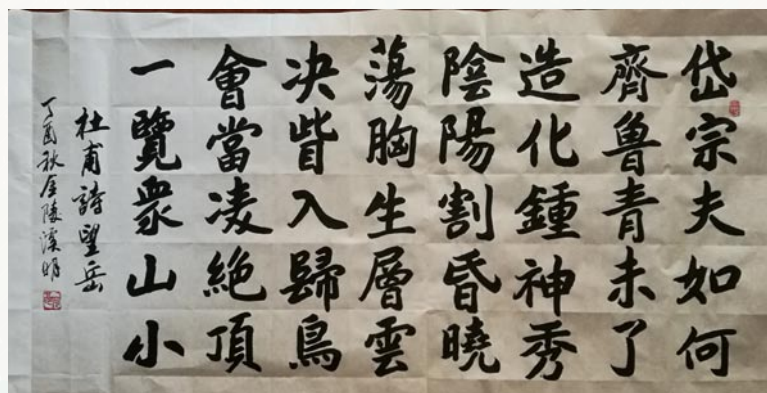 岱宗夫如何
齊魯青未了
造化鍾神秀
陰陽割昏曉
蕩胸生層雲
决眥入歸鳥
會當凌絶頂
一覽衆山小
杜甫詩望岳
丁酉秋金陵溪明